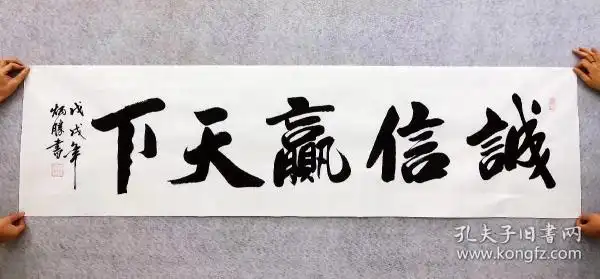 誠信贏天下
戊戌年
炳勝書
孔夫子旧書网
www.kongfz.com